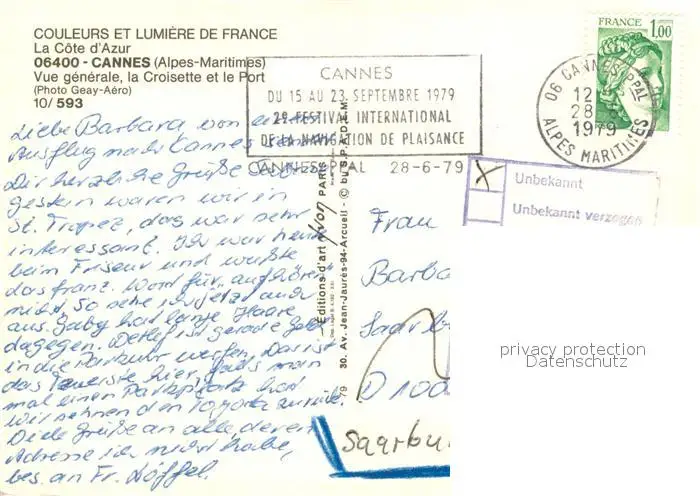 COULEURS ET LUMIÈRE DE FRANCE
La Côte d'Azur
06400 - CANNES (Alpes-Maritimes)
Vue générale, la Croisette et le Port
(Photo Geay-Aéro)
10/ 593
FRANCE
1,00
CANNES
DU 15 AU 23 SEPTEMBRE 1979
2e FESTIVAL INTERNATIONAL
DE LA NAVIGATION DE PLAISANCE
CANNES PPAL 28-6-79
06 CANNES PPAL
12
28-6
1979
ALPES MARITIMES
Unbekannt
Unbekannt verzogen
Liebe Barbara, von
Ausflug nach Cannes
Dir herzliche Grüße
gestern waren wir in
St. Tropez, das war sehr
interessant. Ich war heute
beim Friseur und wußte
das franz. Wort für "aufhören"
nicht. So sehe ich jetzt auch
aus. Gaby hat lange Haare
dagegen. Detlef ist gerade Geld
in die Parkuhr werfen. Das ist
das Teuerste hier, falls man
mal einen Parkplatz hat
wir sehnen den zurück.
Viele Grüße an alle, deren
Adresse ich nicht habe,
bes. an Fr. Löffel.
Editions d'art Yvon PARIS
30. Av. Jean-Jaurès-94-Arcueil - © by S.P.A.D.E.M.
79
Frau
Barba
Saarb
D 100
Saarbu
privacy protection
Datenschutz